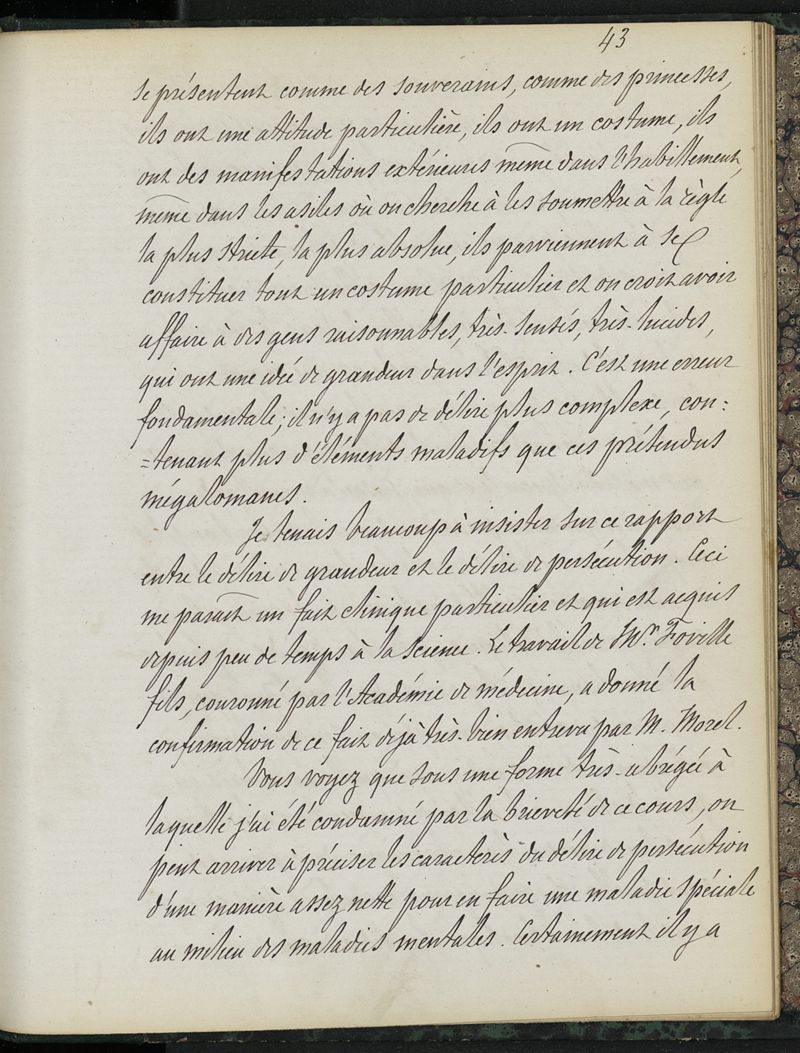 43
se présentent comme des souverains, comme des princesses,
ils ont une attitude particulière, ils ont un costume, ils
ont des manifestations extérieures même dans l'habillement,
même dans les asiles où on cherche à les soumettre à la règle
la plus stricte, la plus absolue, ils parviennent à se
constituer tout un costume particulier et on croit avoir
affaire à des gens raisonnables, très-sensés, très-lucides,
qui ont une idée de grandeur dans l'esprit. C'est une erreur
fondamentale; il n'y a pas de délire plus complexe, con=
=tenant plus d'éléments maladifs que ces prétendus
mégalomanes.
Je tenais beaucoup à insister sur ce rapport
entre le délire de grandeur et le délire de persécution. Ceci
me paraît un fait clinique particulier et qui est acquis
depuis peu de temps à la science. Le travail de Mr. Foville
fils, couronné par l'Académie de médecine, a donné la
confirmation de ce fait déjà très-bien entrevu par M. Morel.
Vous voyez que sous une forme très-abrégée à
laquelle j'ai été condamné par la brieveté de ce cours, on
peut arriver à préciser les caractères du délire de persécution
d'une manière assez nette pour en faire une maladie spéciale
au milieu des maladies mentales. Certainement il y a